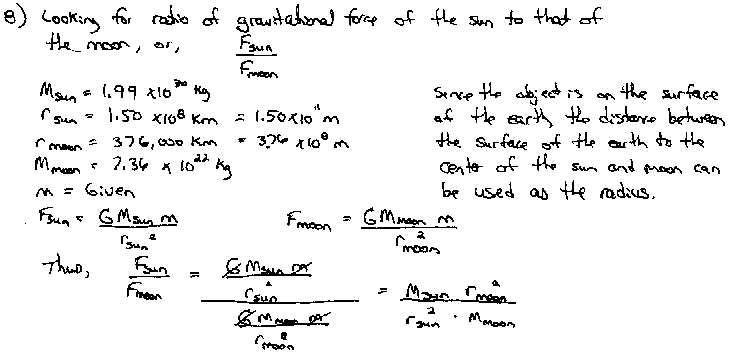 8) Looking for ratio of gravitational force of the sun to that of
the moon, or, F_sun / F_moon
M_sun = 1.99 x10^30 kg
r_sun = 1.50 x10^8 km = 1.50x10^11 m
r_moon = 376,000 km = 3.76 x10^8 m
M_moon = 7.36 x 10^22 kg
m = Given
Since the object is on the surface
of the earth the distance between
the surface of the earth to the
center of the sun and moon can
be used as the radius.
F_sun = G M_sun m / r_sun^2
F_moon = G M_moon m / r_moon^2
Thus, F_sun / F_moon = (G M_sun m / r_sun^2) / (G M_moon m / r_moon^2) = M_sun r_moon^2 / r_sun^2 · M_moon